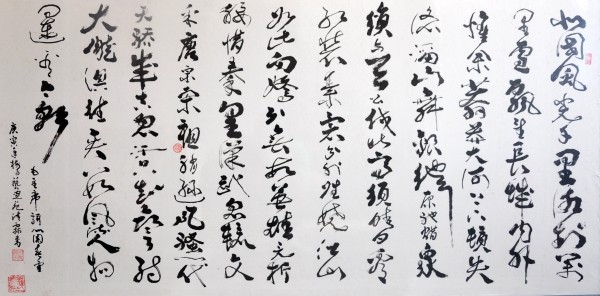 北國風光千里冰封萬
里雪飄望長城內外
惟餘莽莽大河上下頓失
滔滔山舞銀蛇原馳蠟象
欲與天公試比高須晴日看
紅裝素裹分外妖嬈江山
如此多嬌引無數英雄競折
腰惜秦皇漢武略輸文
采唐宗宋祖稍遜風騷一代
天驕成吉思汗只識彎弓射
大雕俱往矣數風流人物
還看今朝
毛主席詞沁園春雪
庚寅年